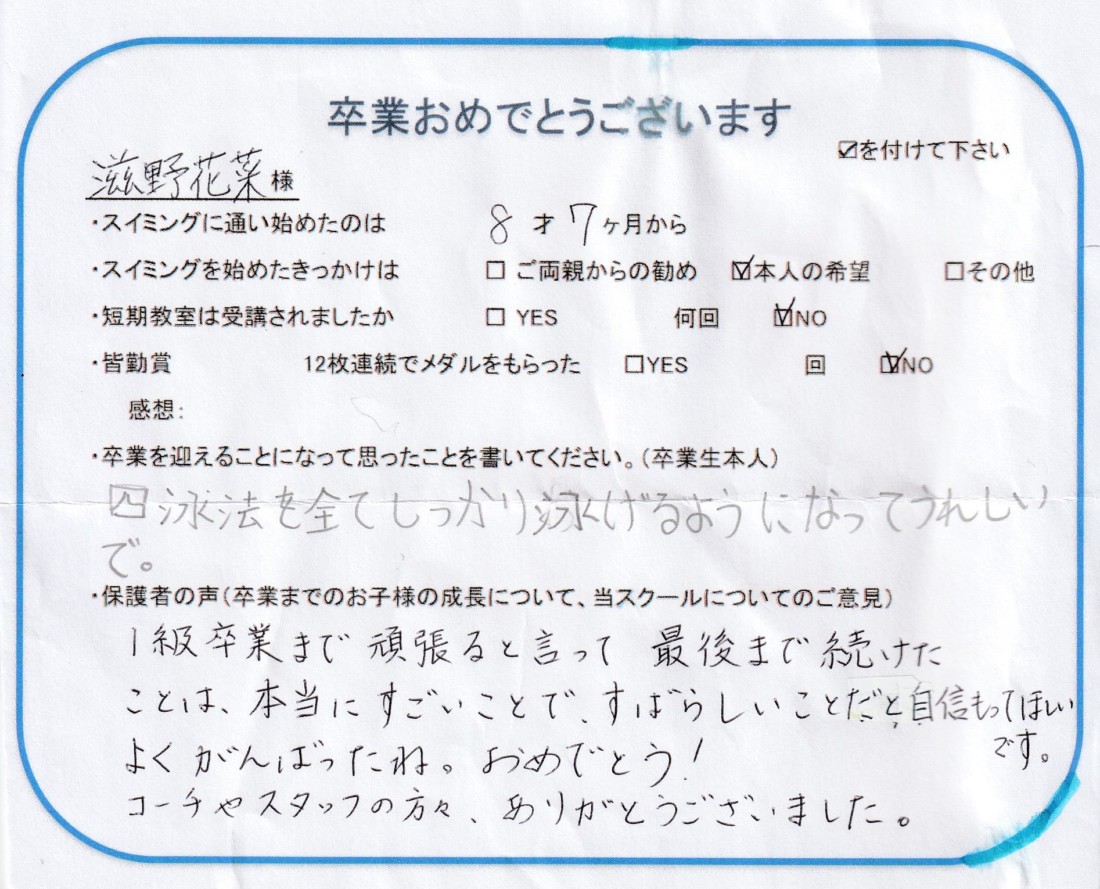 卒業おめでとうございます
☑を付けて下さい
滋野花菜様
・スイミングに通い始めたのは 8才7ヶ月から
・スイミングを始めたきっかけは □ ご両親からの勧め ☑本人の希望 □その他
・短期教室は受講されましたか □ YES 何回 ☑NO
・皆勤賞 12枚連続でメダルをもらった □YES 回 ☑NO
感想:
・卒業を迎えることになって思ったことを書いてください。(卒業生本人)
四泳法を全てしっかり泳げるようになってうれしい
で。
・保護者の声(卒業までのお子様の成長について、当スクールについてのご意見)
1級卒業まで頑張ると言って 最後まで続けた
ことは、本当にすごいことで、すばらしいことだと自信もってほしい
です。
よくがんばったね。おめでとう!
コーチやスタッフの方々、ありがとうございました。